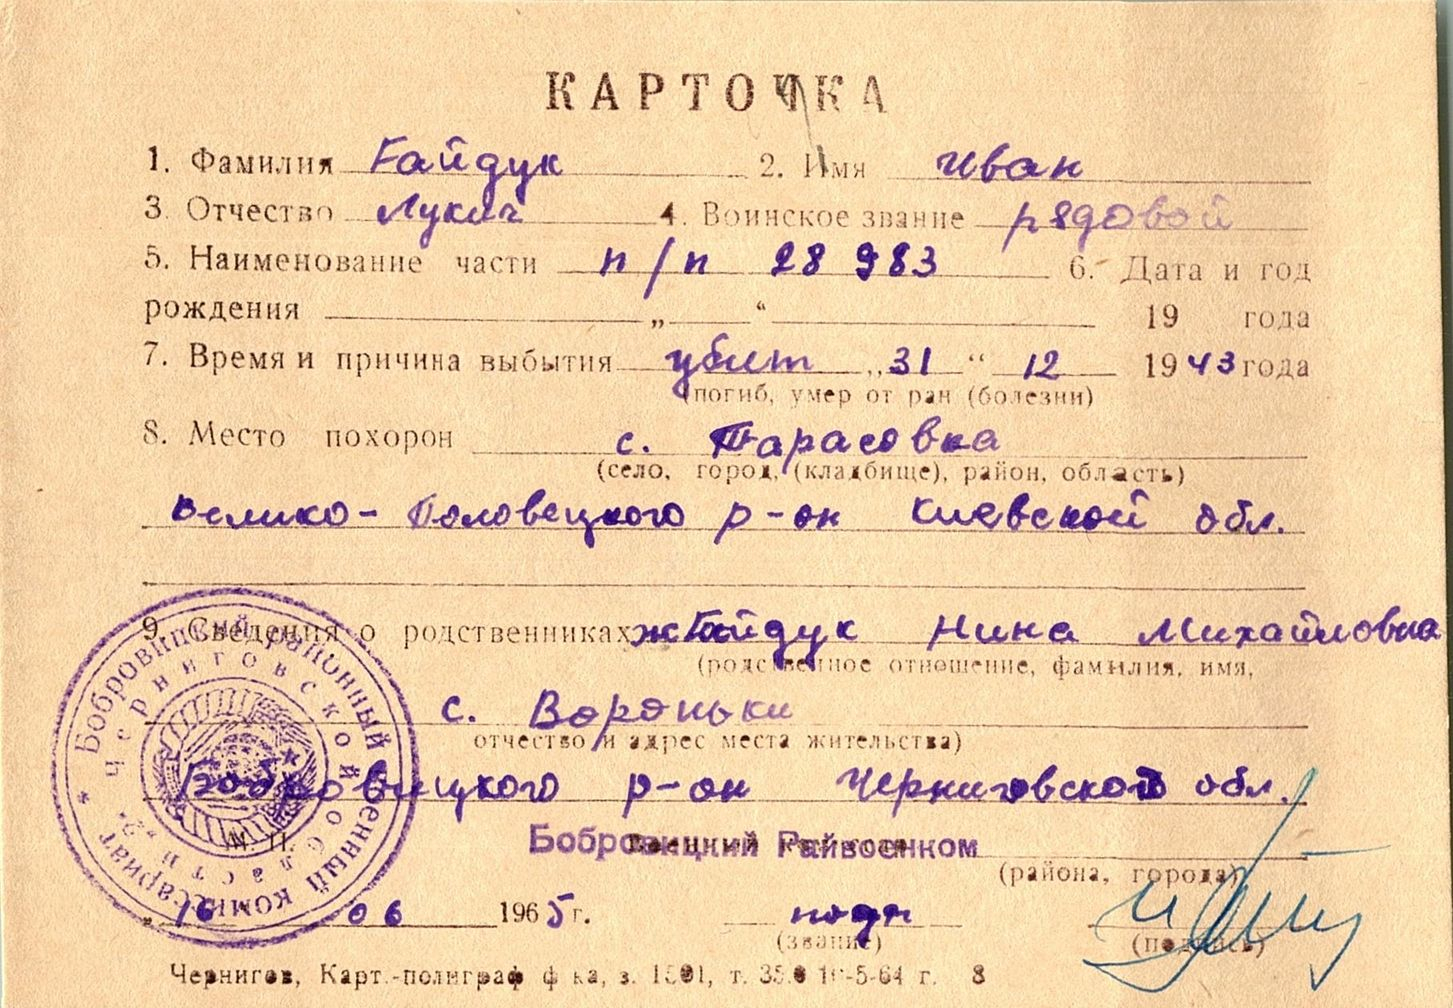 КАРТОЧКА
1. Фамилия Гайдук 2. Имя Иван
3. Отчество Лукич 4. Воинское звание рядовой
5. Наименование части п/п 28983 6. Дата и год
рождения „ “ 19 года
7. Время и причина выбытия убит „31“ 12 1943 года
(погиб, умер от ран (болезни)
8. Место похорон с. Тарасовка
(село, город, (кладбище), район, область)
Велико-Половецкого р-он Киевской обл.
9. Сведения о родственниках ж Гайдук Нина Михайловна
(родственное отношение, фамилия, имя,
с. Вороньки
отчество и адрес места жительства)
Бобровицкого р-он Черниговской обл.
М. П. Бобровицкий Райвоенком
(района, города)
„16 06 1965 г. подп
(звание) (подпись)
Чернигов, Карт.-полиграф ф ка, з. 1501, т. 35.0 -5-64 г. 8
* Бобровицкий районный военный комиссариат
Черниговской области